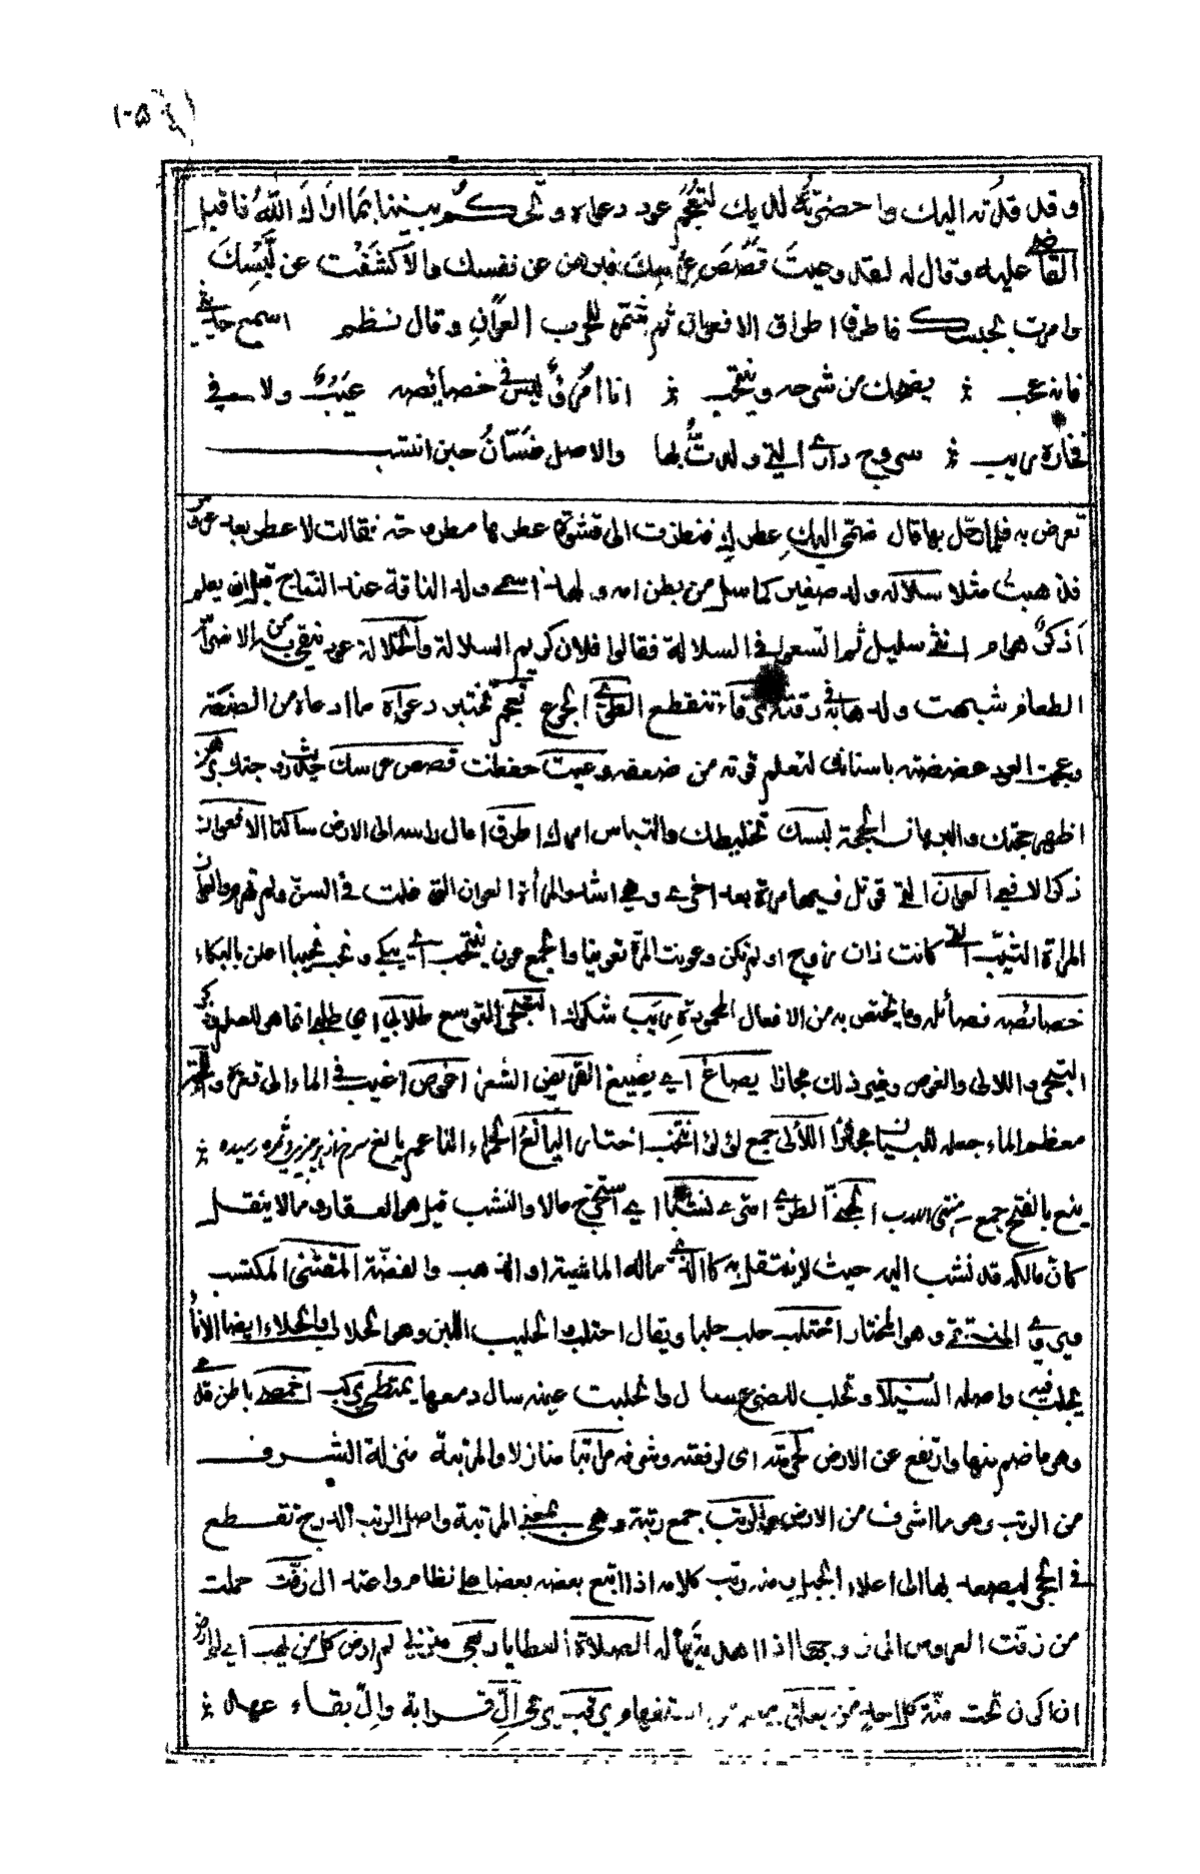 ١٠٥
وقد قدته اليك واحضرته لديك لتعجم عود دعواه وتحكم بيننا بما اراك الله فاقبل
القاضي عليه وقال له لقد وعيت قصص عرسك فبرهن عن نفسك والا كشفت عن لبسك
وامرت بحبسك فاطرق اطراق الافعوان ثم شمر للحرب العوان وقال نظم اسمع حديثي
فانه عجب يضحك من شرحه وينتحب انا امرؤ ليس في خصائصه عيب ولا في
فخاره ريب سروج داري التي ولدت بها والاصل غسان حين انتسب
تعرض به فلما دخل بها قال ضمي اليك عطرك فنظرت الى قشوة عطرها مطروحة فقالت لا عطر بعد عروس
فذهبت مثلا سلاله ولد صغير كما سل من بطن امه ولهذا اسمي ولد الناقة عند النتاج قبل ان يعلم
اذكر هو ام انثى سليل ثم اتسعوا في السلالة فقالوا فلان كريم السلالة والخلالة عود ينقى به من الاضراس
الطعام شبهت ولدها به في دقته تنقطع الجوع تعجم تختبر دعواه ما ادعاه من الصنعة
وعجمت العود عضضته باسنانك لتعلم قوته من ضعفه وعيت حفظت قصص عرسك حديث زوجتك برهن
اظهر حجتك والبرهان الحجة لبسك تخليطك والتباس امرك اطرق امال راسه الى الارض ساكتا الافعوان
ذكر الافعى العوان التي قوتل فيها مرة بعد اخرى وهي اشد والمرأة العوان التي دخلت في السن ولم تهرم والعوان
المراة الثيب التي كانت ذات زوج او لم تكن وعونت المرأة تعوينا والجمع عون ينتحب اي يبكي ونحب نحيبا اعلن بالبكاء
خصائصه فضائله وما يختص به من الافعال المحمودة ريب شكوك التبحر التوسع طلابي اي طلبي انما هو للعلم
التبحر واللالى والغوص وغير ذلك مجازا يصاغ اي يصيغ القريض الشعر اغوص اغيب في الماء الى قعره واللجة
معظم الماء جعله للبيان مجازا اللآلى جمع لؤلؤ انتخب اختار اليانع الحمراء الناعم
ينع بالفتح جمع الجني الطري امتري نشبا اي استخرج مالا والنشب قيل هو العقار وما لا ينقل
كان مالكه قد نشب اليه حيث لا ينتقل به كالذي ماله الماشية او الذهب والفضة المقتنى المكتسب
المختار احتلب حلب حلبا ويقال احتلب والحليب اللبن وهو الحلاب والحلاب ايضا الاناء
يحلب فيه واصله السيلان وتحلب للضرع سال وانحلبت عينه سال دمعها يمتطي يركب اخمصه باطن قدمه
وهو ما ضم منها وارتفع عن الارض لحرمته اى لرفعته وشرفه مراتبا منازلا والمرتبة منزلة الشرف
من الرتب وهو ما اشرف من الارض والرتب جمع رتبة وهي بمعنى المرتبة واصل الرتب الدرج تقطع
في الحجر ليصعد بها الى اعلاء الجبل ومنه رتب كلامه اذا اتبع بعضه بعضا على نظام واعتدال زفت حملت
من زفت العروس الى زوجها اذا اهديتها له الصلاة العطايا ربعي منزلي لم ارض كل من يهب اي لم ارض
ان اكون تحت منة كل احد من يعلق استفهام يرقب يرعى الّ قرابة والّ بقاء عهد